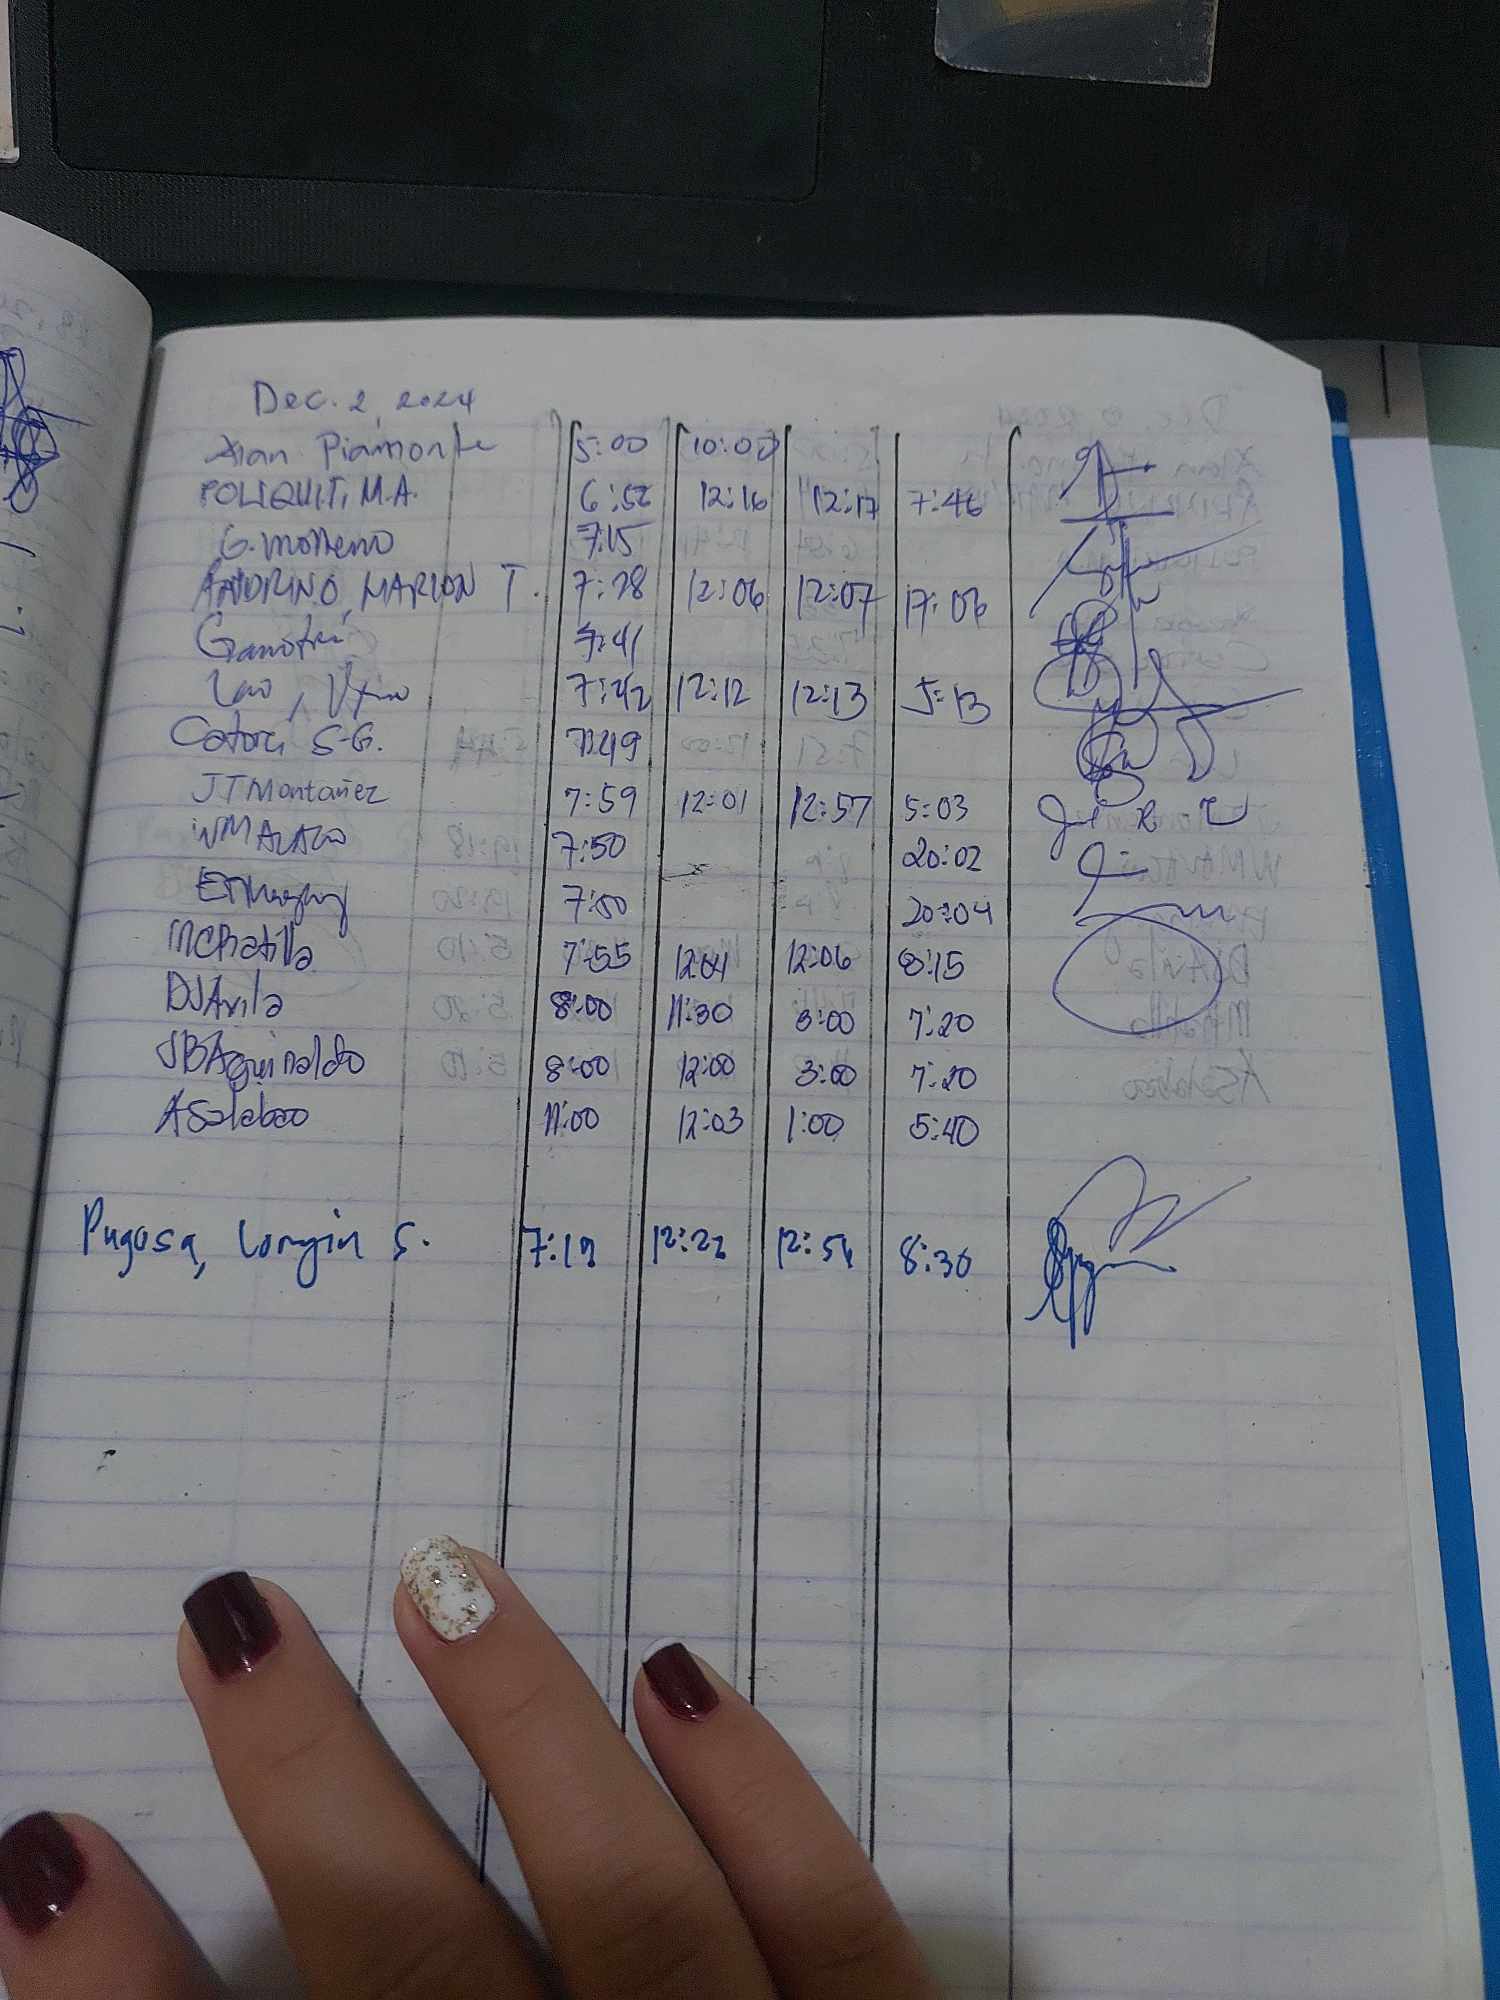 Dec. 2, 2024
Alan Piamonte 5:00 10:00
POLIQUIT, M.A. 6:56 12:16 12:17 7:46
G. Moreno 7:15
MARLON T. 7:28 12:06 12:07 17:06
7:41
Lao, 7:42 12:12 12:13 5:13
S.G. 7:49
JTMontañez 7:59 12:01 12:57 5:03
7:50 20:02
7:50 20:04
MCBatilla 7:55 12:04 12:06 8:15
DJAvila 8:00 11:30 3:00 7:20
JBAguinaldo 8:00 12:00 3:00 7:20
ASalabao 11:00 12:03 1:00 5:40
Pugosa, Longin S. 7:19 12:22 12:54 8:30